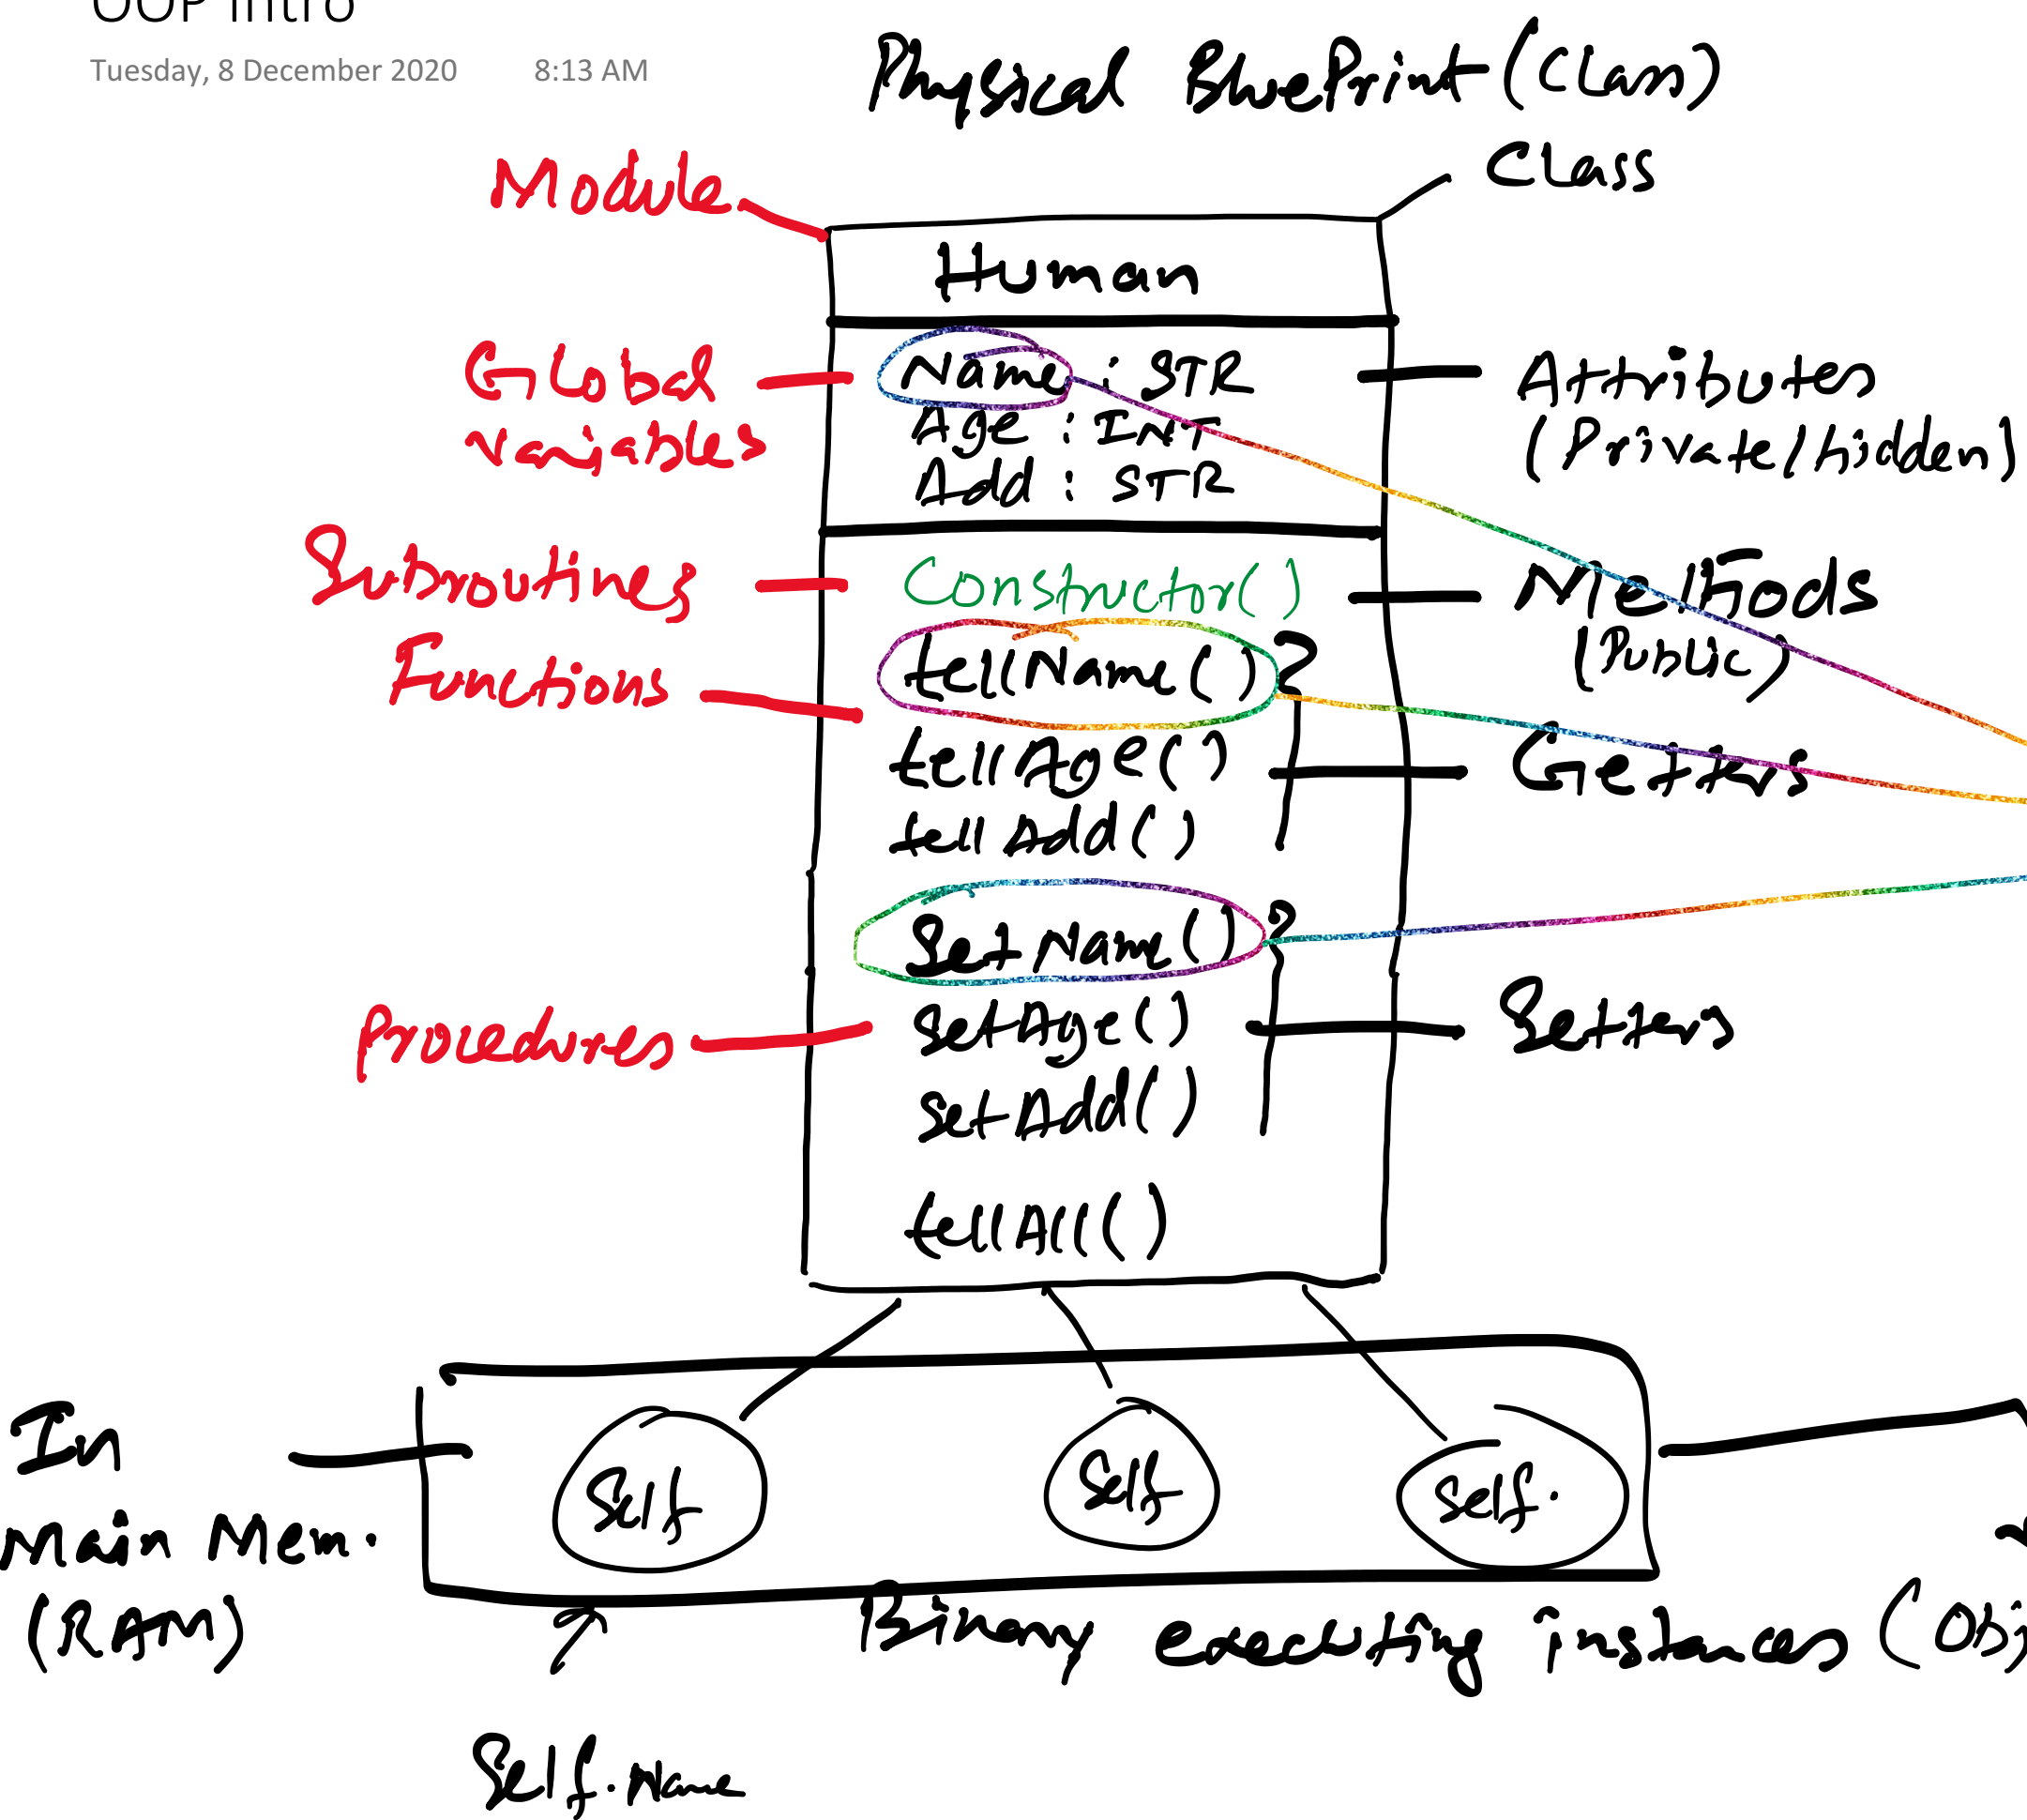 OOP Intro
Tuesday, 8 December 2020 8:13 AM
Physical BluePrint (Class)
Module
Class
Human
Global
Variables
Name : STR
Age : INT
Add : STR
Attributes
(Private/hidden)
Subroutines
Constructor()
Methods
(Public)
Functions
tellName()
tellAge()
Getters
tellAdd()
SetName()
Procedures
SetAge()
Setters
SetAdd()
tellAll()
In
Main Mem.
(RAM)
Self
Self
Self.
Binary executing instances (Obj
Self.Name